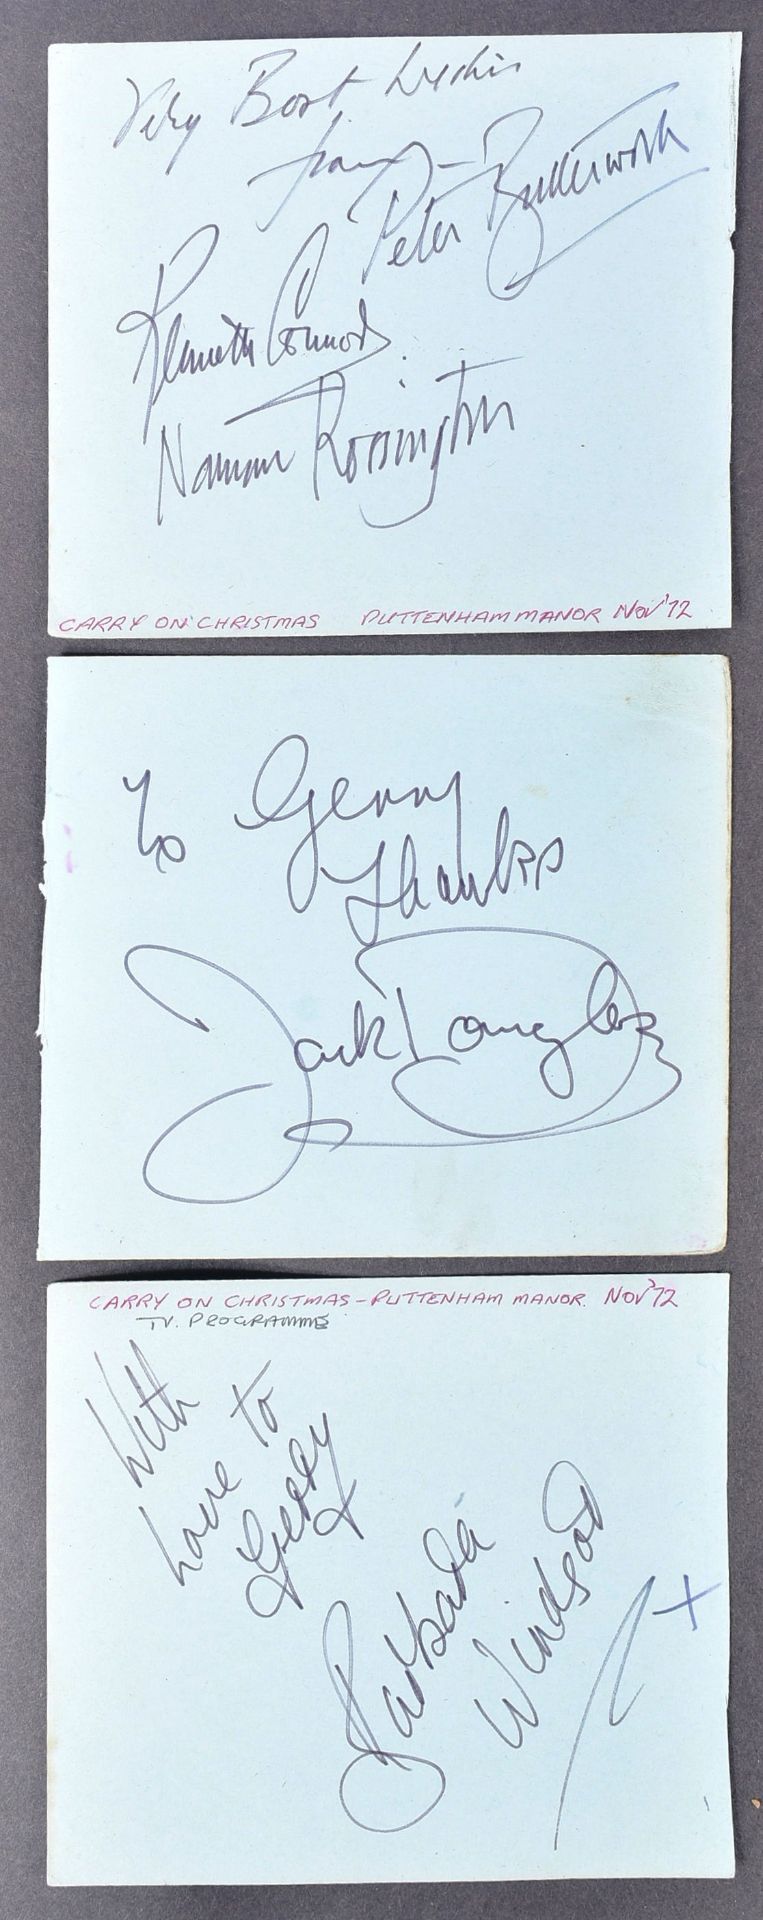 Very Best Wishes
from -
Peter Butterworth
Kenneth Connor
Norman Rossington
CARRY ON CHRISTMAS PUTTENHAM MANOR NOV '72
To Gerry
Thanks
Jack Douglas
CARRY ON CHRISTMAS - PUTTENHAM MANOR. NOV '72
TV. PROGRAMME
With
Love to
Gerry
Barbara
Windsor
x